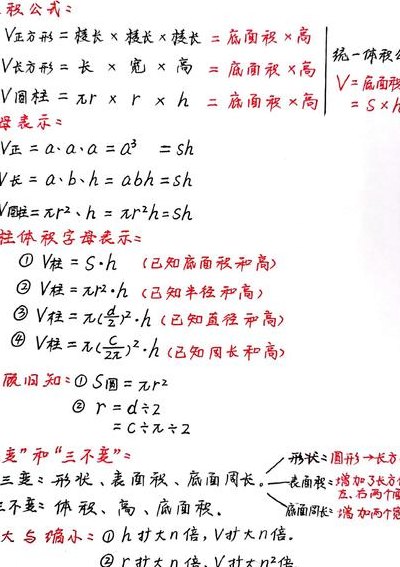 积公式:
V正方形 = 棱长 × 棱长 × 棱长 = 底面积 × 高
V长方形 = 长 × 宽 × 高 = 底面积 × 高
V圆柱 = πr × r × h = 底面积 × 高
统一体积公
V = 底面积
= S × h
母表示:
V正 = a·a·a = a³ = sh
V长 = a·b·h = abh = sh
V圆柱 = πr²·h = πr²h = sh
柱体积字母表示:
① V柱 = S·h (已知底面积和高)
② V柱 = πr²·h (已知半径和高)
③ V柱 = π(d/2)²·h (已知直径和高)
④ V柱 = π(C/2π)²·h (已知周长和高)
顾旧知: ① S圆 = πr²
② r = d÷2
= C÷π÷2
变"和"三不变":
三变: 形状、表面积、底面周长。
形状: 圆形→长方
表面积: 增加了长方
左、右两个面
底面周长: 增加两个宽
三不变: 体积、高、底面积。
大与缩小: ① h扩大n倍, V扩大n倍。
② r扩大n倍, V扩大n²倍.